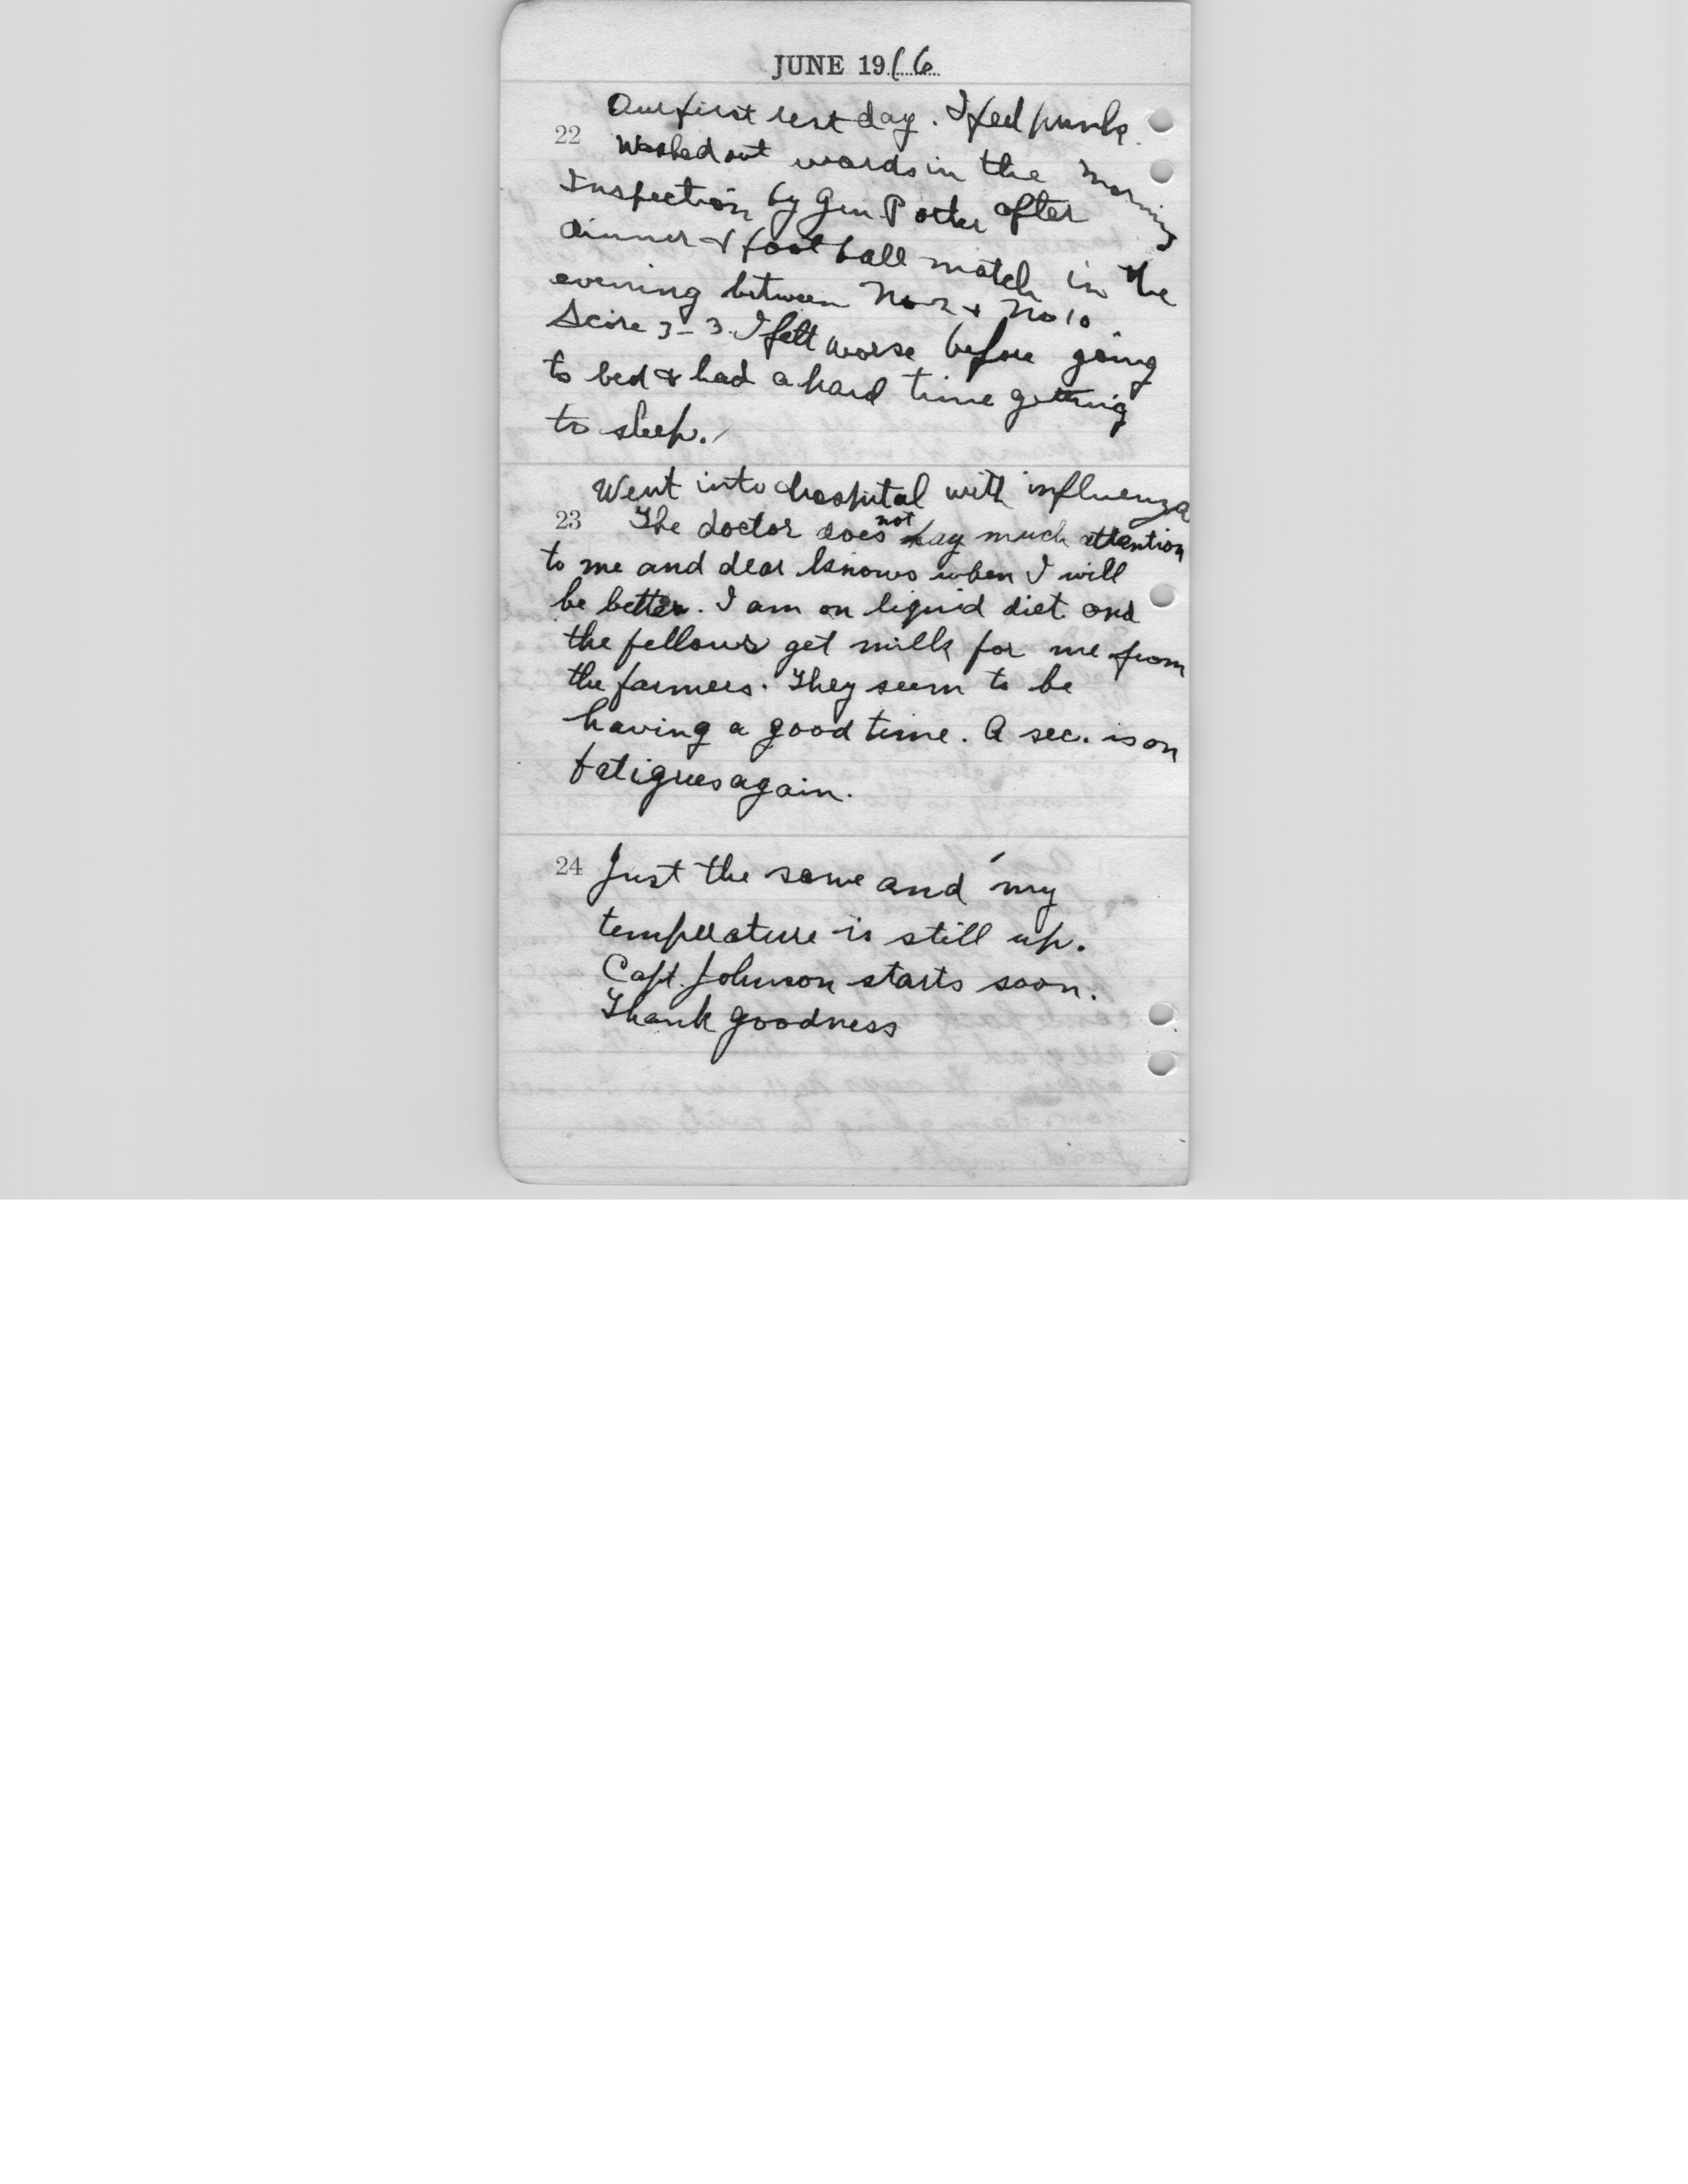 JUNE 1916
Our first rest day. I feel punk.
22 Washed out wards in the morning
Inspection by Gen Porter after
dinner & foot ball match in the
evening between No 2 & No 10.
Score 3-3. I felt worse before going
to bed & had a hard time getting
to sleep.
Went into hospital with influenza
23 The doctor does not pay much attention
to me and dear knows when I will
be better. I am on liquid diet and
the fellows get milk for me from
the farmers. They seem to be
having a good time. A sec. is on
fatigues again.
24 Just the same and my
temperature is still up.
Capt. Johnson starts soon.
Thank goodness